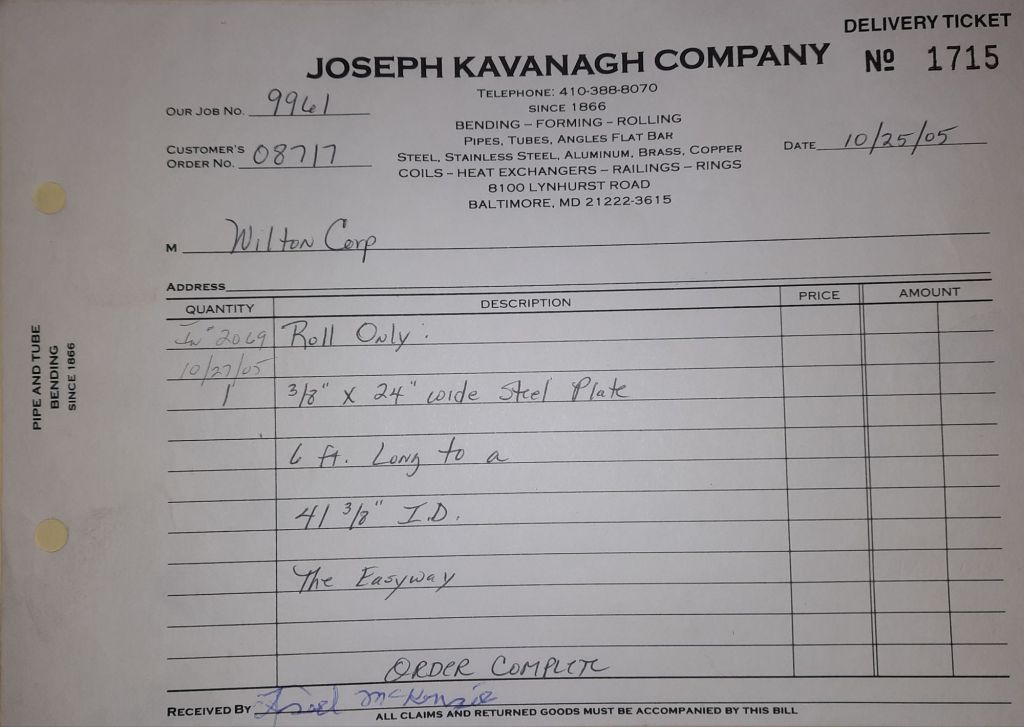 DELIVERY TICKET
JOSEPH KAVANAGH COMPANY
Nº 1715
TELEPHONE: 410-388-8070
SINCE 1866
OUR JOB NO. 9961
BENDING – FORMING – ROLLING
PIPES, TUBES, ANGLES FLAT BAR
CUSTOMER'S
ORDER NO. 08717
STEEL, STAINLESS STEEL, ALUMINUM, BRASS, COPPER
DATE 10/25/05
COILS – HEAT EXCHANGERS – RAILINGS – RINGS
8100 LYNHURST ROAD
BALTIMORE, MD 21222-3615
M Wilton Corp
ADDRESS
QUANTITY DESCRIPTION PRICE AMOUNT
In# 2069 Roll Only:
10/27/05
1 3/8" x 24" wide Steel Plate
6 ft. Long to a
41 3/8" I.D.
The Easyway
ORDER COMPLETE
RECEIVED BY McKenzie
ALL CLAIMS AND RETURNED GOODS MUST BE ACCOMPANIED BY THIS BILL
PIPE AND TUBE
BENDING
SINCE 1866